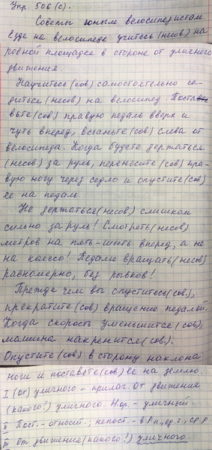 Упр. 506 (с).
Советы юным велосипедистам
Езде на велосипеде учитесь (несов) на
ровной площадке в стороне от уличного
движения.
Научитесь (сов) самостоятельно са-
диться (несов) на велосипед. Поста-
вьте (сов) правую педаль вверх и
чуть вперёд, встаньте (сов) слева от
велосипеда. Когда будете держаться
(несов) за руль, перенесите (сов) пра-
вую ногу через седло и опустите (сов)
её на педаль.
Не держитесь (несов) слишком
сильно за руль! Смотрите (несов)
метров на пять-шесть вперёд, а не
на колесо! Педали вращайте (несов)
равномерно, без рывков!
Прежде чем вы спуститесь (сов),
прекратите (сов) вращение педалей.
Когда скорость уменьшится (сов),
машина накренится (сов).
Опустите (сов) в сторону наклона
ноги и поставьте (сов) её на землю.
I (от) уличного - прилаг. от движения
(какого?) уличного. Нф. - уличный.
II Пост. - относит., непост. - в Р.п.,
III От движения (какого?) уличного.